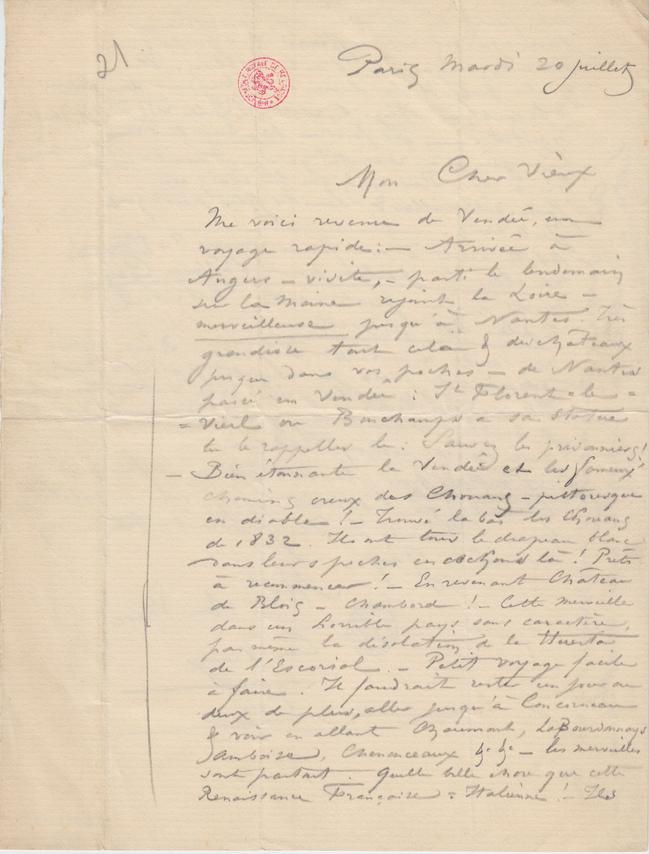 21
Paris Mardi 20 juillet
Mon Cher Vieux
Me voici revenu de Vendée, un
voyage rapide : — Arrivée à
Angers — visite, — parti le lendemain
sur la Maine rejoint la Loire —
merveilleuse jusqu'à Nantes. Très
grandiose tout cela & des châteaux
jusque dans vos poches — de Nantes
passé en Vendée : St Florent-le-
= Vieil où Bonchamps a sa statue
tu te rappelles le : Sauvez les prisonniers !
— Bien étonnante la Vendée et les fameux
chemins creux des Chouans — pittoresque
en diable ! — Trouvé là bas les Chouans
de 1832. Ils ont tous le drapeau blanc
dans leurs poches ces cochons là ! Prêts
à recommencer ! — En revenant Château
de Blois — Chambord ! — Cette merveille
dans un horrible pays sans caractère,
pas même la désolation de la Huerta
de l'Escorial. — Petit voyage facile
à faire. Il faudrait rester un jour ou
deux de plus, aller jusqu'à Concarneau
& voir en allant Chaumont, La Bourdonnays
Amboise, Chenonceaux &c &c — les merveilles
sont partout. Quelle belle chose que cette
Renaissance Française = Italienne ! — Ils